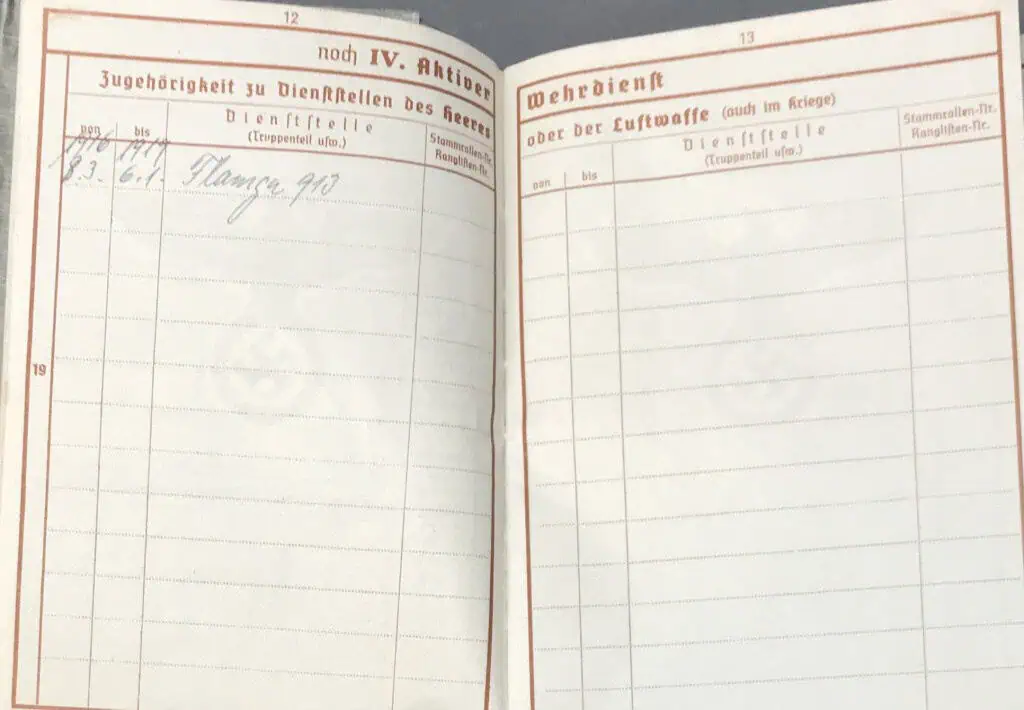 12
noch IV. Aktiver
Zugehörigkeit zu Dienststellen des Heeres
von
bis
Dienststelle
(Truppenteil usw.)
Stammrollen-Nr.
Ranglisten-Nr.
1916 1919
8.3. 6.1. Flamga 913
19
13
Wehrdienst
oder der Luftwaffe (auch im Kriege)
von
bis
Dienststelle
(Truppenteil usw.)
Stammrollen-Nr.
Ranglisten-Nr.